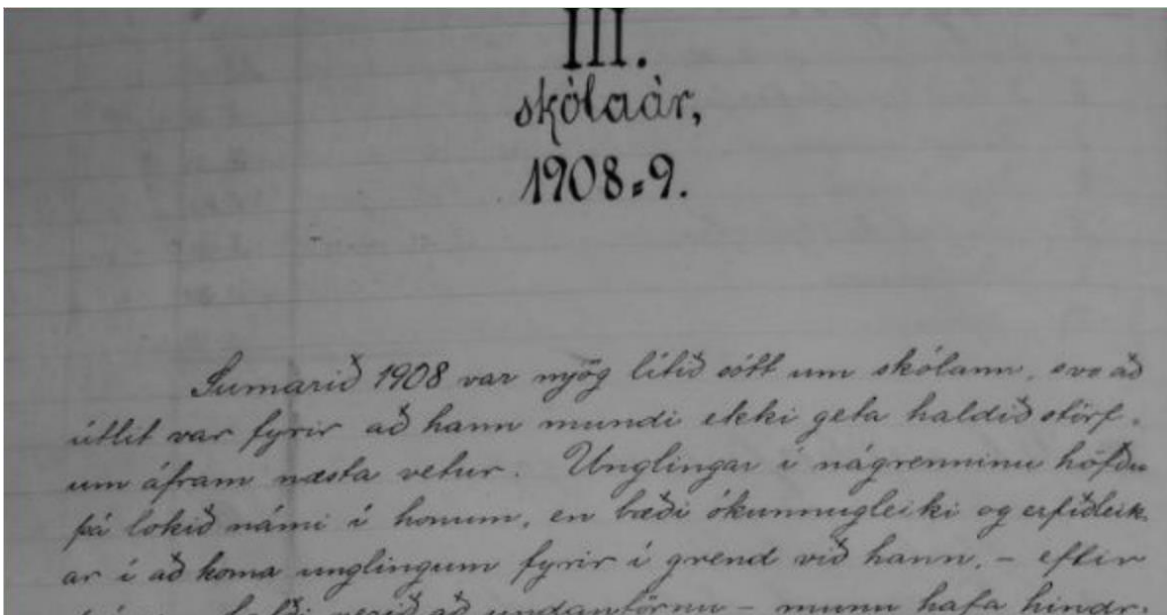 III.
skólaár,
1908-9.
Sumarið 1908 var mjög lítið sótt um skólann, svo að
útlit var fyrir að hann mundi ekki geta haldið störf-
um áfram næsta vetur. Unglingar í nágrenninu höfðu
þá lokið námi í honum, en bæði ókunnugleiki og erfiðleik-
ar í að koma unglingum fyrir í grend við hann, - eftir
verið að undanförnu - munu hafa hindr-